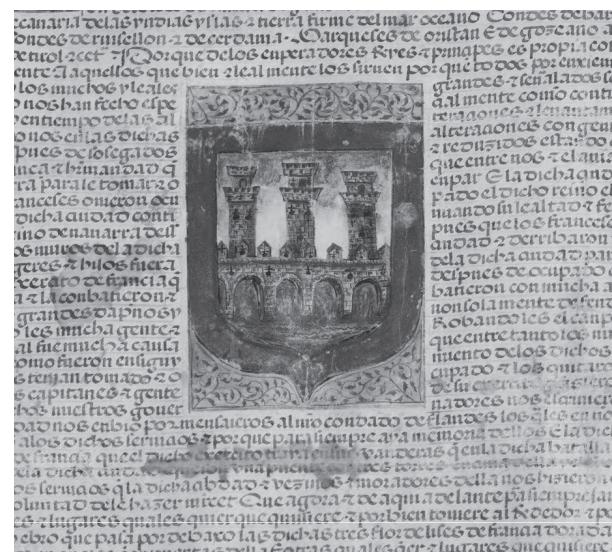 ecanaria delas yndias yslas ⁊ tierra firme del mar oceano Condes de bar
ondes de ruisellon ⁊ de cerdania Marqueses de oristan E de goziano a
e tirol ⁊cet̃ Porque delos enperadores ⁊ reyes ⁊ principes es propia co
ente A aquellos que bien ⁊ leal mente los siruen por que todos por enxien
los muchos y leales
o nos han fecho espe
en tiempo de las al
o nos en las dichas
pues de sosegados
inca ⁊ hermandad q̃
ra para le tomar ⁊ o
anceses ouieron ocu
dicha ciudad conti
ino de nauarra dess
os muros dela dicha
geres ⁊ hijos fuera
exercito de francia q̃
a ⁊ la conbatieron ⁊
grandes dapnos y
y les mucha gente ⁊
al fue mucha causa
omo fueron en siguy
s tenian tomado ⁊ o
s capitanes ⁊ gente
hos nuestros gouer
grandes ⁊ señalados
q̃al mente como conti
teraciones ⁊ leuantam
alteraciones con gen
⁊ reduzidos estando
que entre nos ⁊ el
enpar E la dicha
pado el dicho reino
nuando su lealtad ⁊ fe
pues que los frances
ciudad ⁊ derribaron
dela dicha ciudad par
despues de ocupado
batieron con mucha
non sola mente defen
Robando les el canp
que entre tanto los
miento delos dichos
cupado ⁊ los quitar
de su exercito
nadores nos
dad nos enbio por mensaieros al nr̃o condado de flandes los q̃les en
alos dichos seruicios ⁊ porque para siempre aya memoria dellos E la dic
de francia que el dicho exercito traya en sus vanderas q̃ en la dicha batalla
ela dicha vna puente tres torres encima
os seruicios q̃ la dicha cibdad ⁊ vezinos ⁊ moradores della nos hizieron
oluntad de le hazer merc̃et Que agora ⁊ de aqui adelante pa sienpre
es ⁊ lugares quales quier que quisiere ⁊ por bien touiere al Rededor
ebro que pasa por debaxo las dichas tres flor de lises de francia dorad